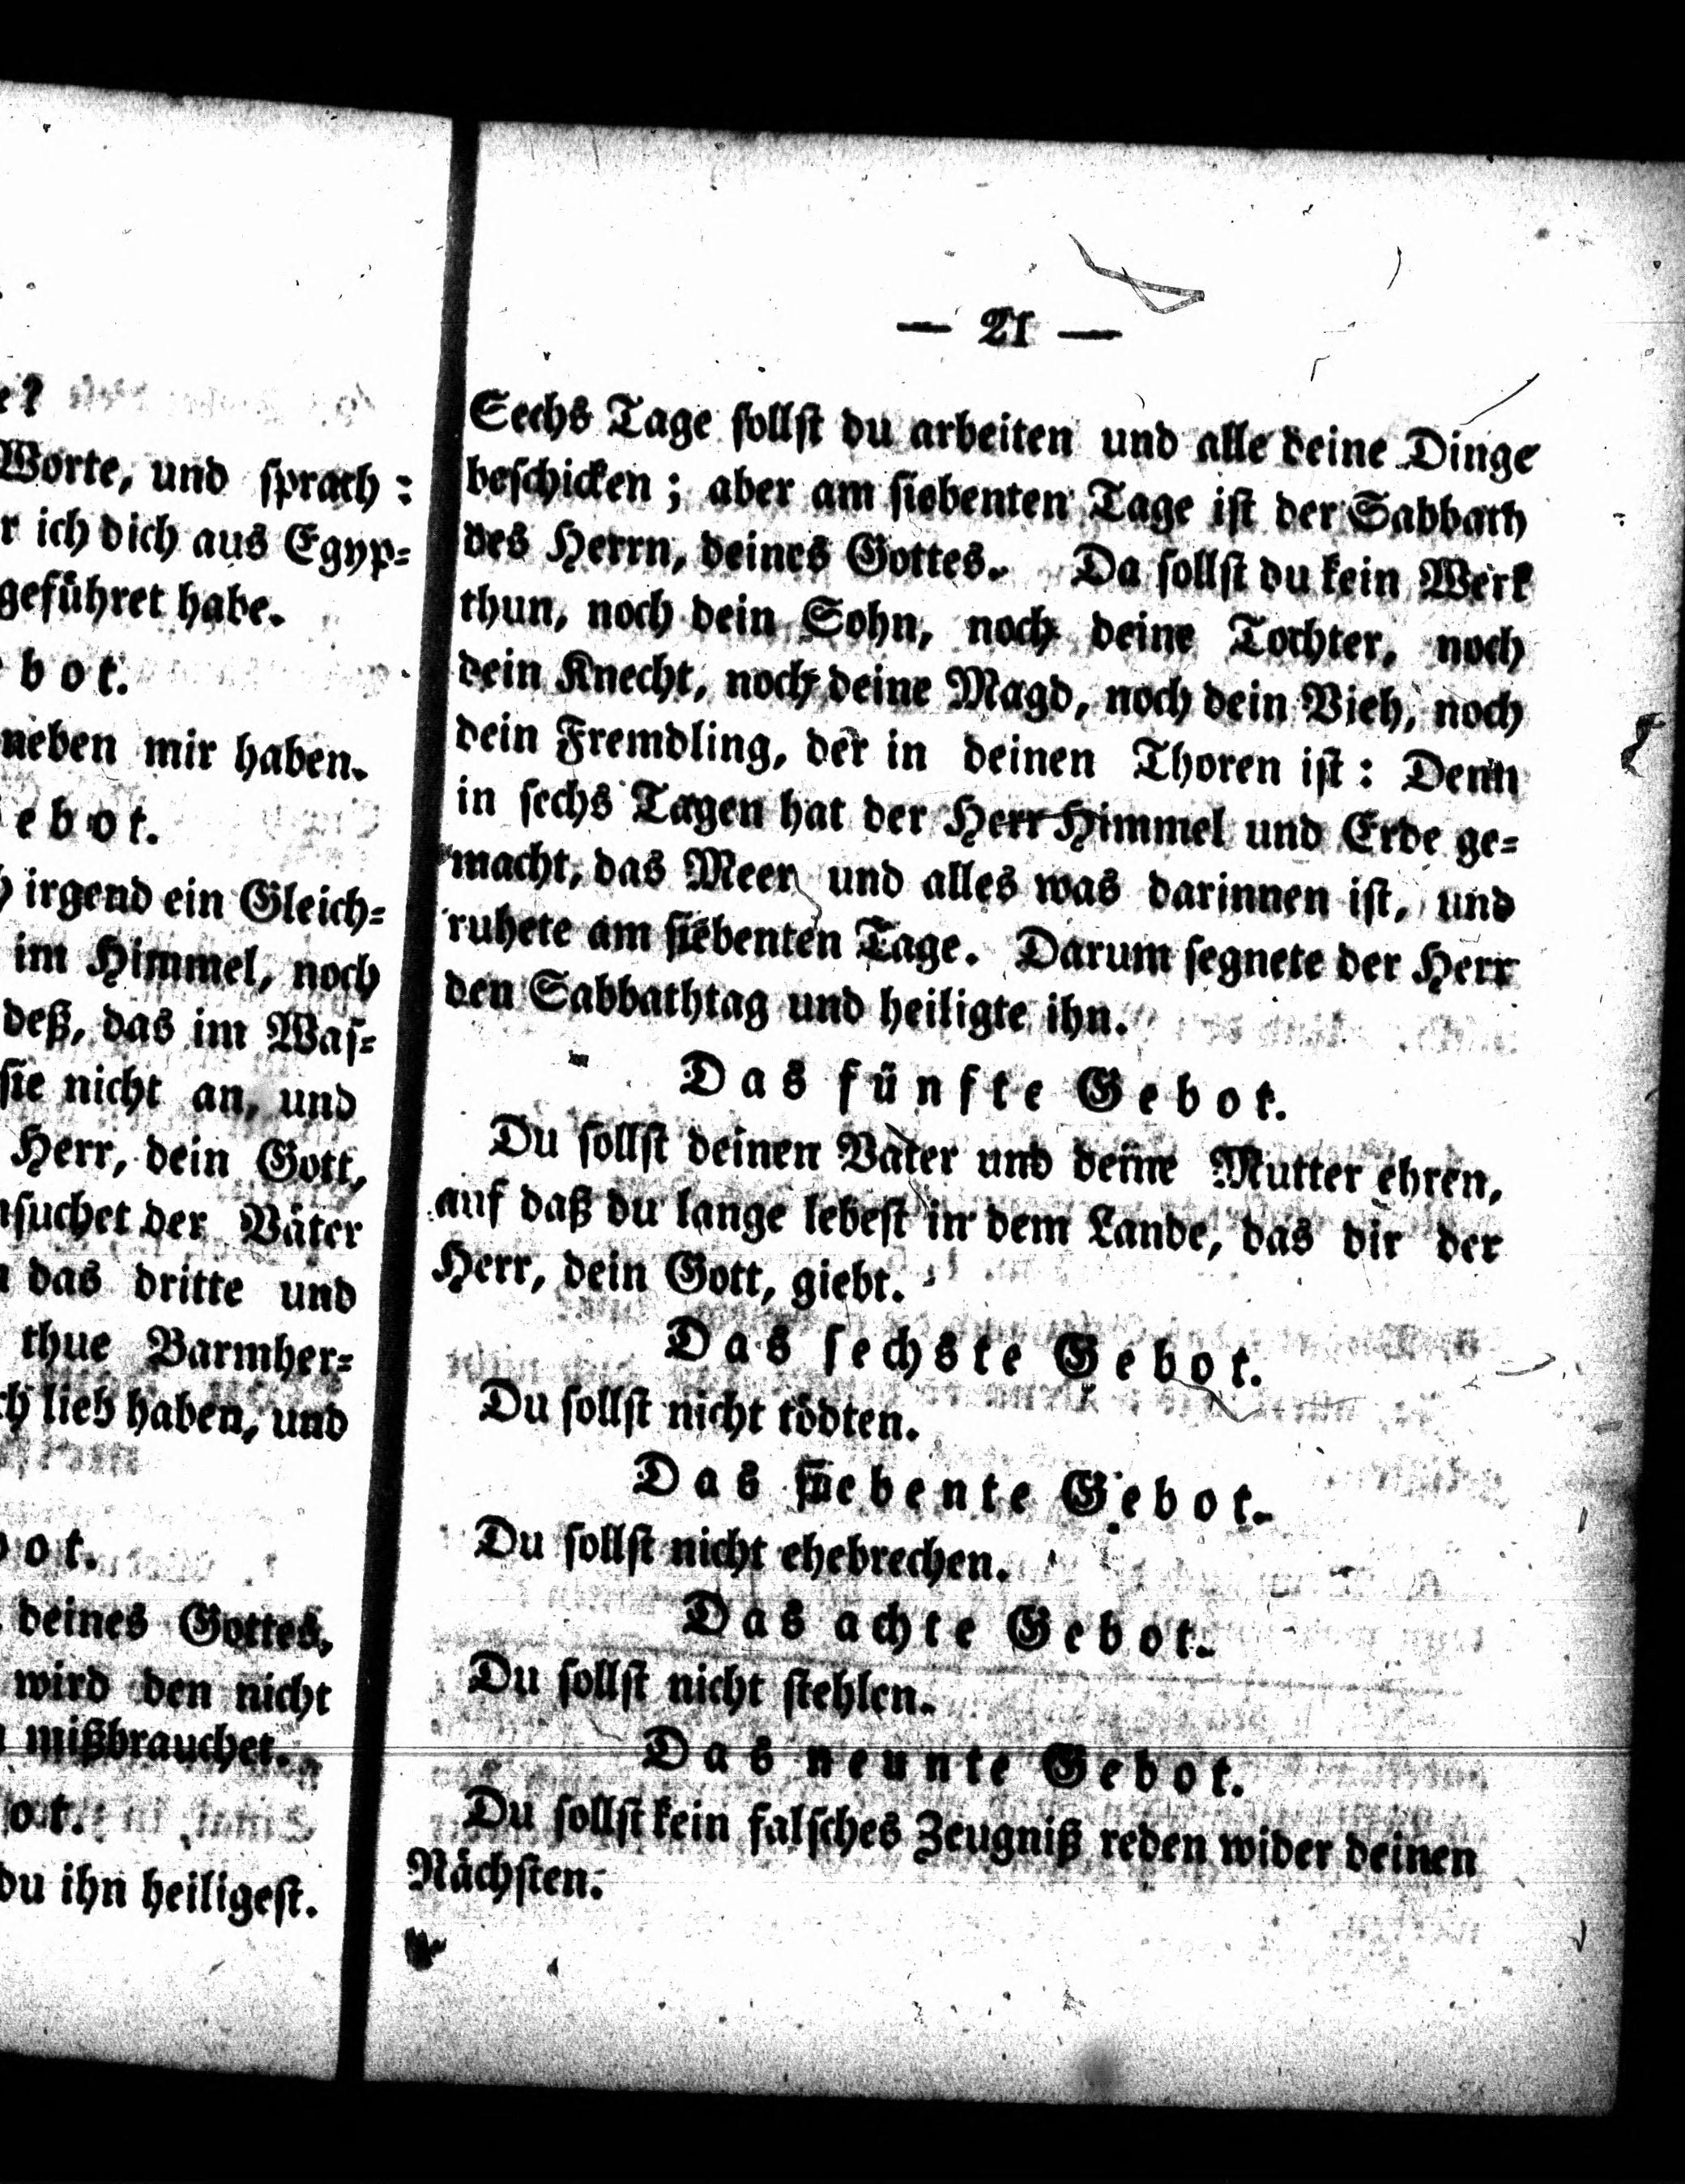 e?
Worte, und sprach:
r ich dich aus Egyp=
geführet habe.
bot.
neben mir haben.
ebot.
irgend ein Gleich=
im Himmel, noch
deß, das im Was=
sie nicht an, und
Herr, dein Gott,
suchet der Väter
das dritte und
thue Barmher=
ch lieb haben, und
ot.
deines Gottes,
wird den nicht
mißbrauchet.
ot.
du ihn heiligest.
— 21 —
Sechs Tage sollst du arbeiten und alle deine Dinge
beschicken; aber am siebenten Tage ist der Sabbath
des Herrn, deines Gottes. Da sollst du kein Werk
thun, noch dein Sohn, noch deine Tochter, noch
dein Knecht, noch deine Magd, noch dein Vieh, noch
dein Fremdling, der in deinen Thoren ist: Denn
in sechs Tagen hat der Herr Himmel und Erde ge=
macht, das Meer und alles was darinnen ist, und
ruhete am siebenten Tage. Darum segnete der Herr
den Sabbathtag und heiligte ihn.
Das fünfte Gebot.
Du sollst deinen Vater und deine Mutter ehren,
auf daß du lange lebest in dem Lande, das dir der
Herr, dein Gott, giebt.
Das sechste Gebot.
Du sollst nicht tödten.
Das siebente Gebot.
Du sollst nicht ehebrechen.
Das achte Gebot.
Du sollst nicht stehlen.
Das neunte Gebot.
Du sollst kein falsches Zeugniß reden wider deinen
Nächsten.